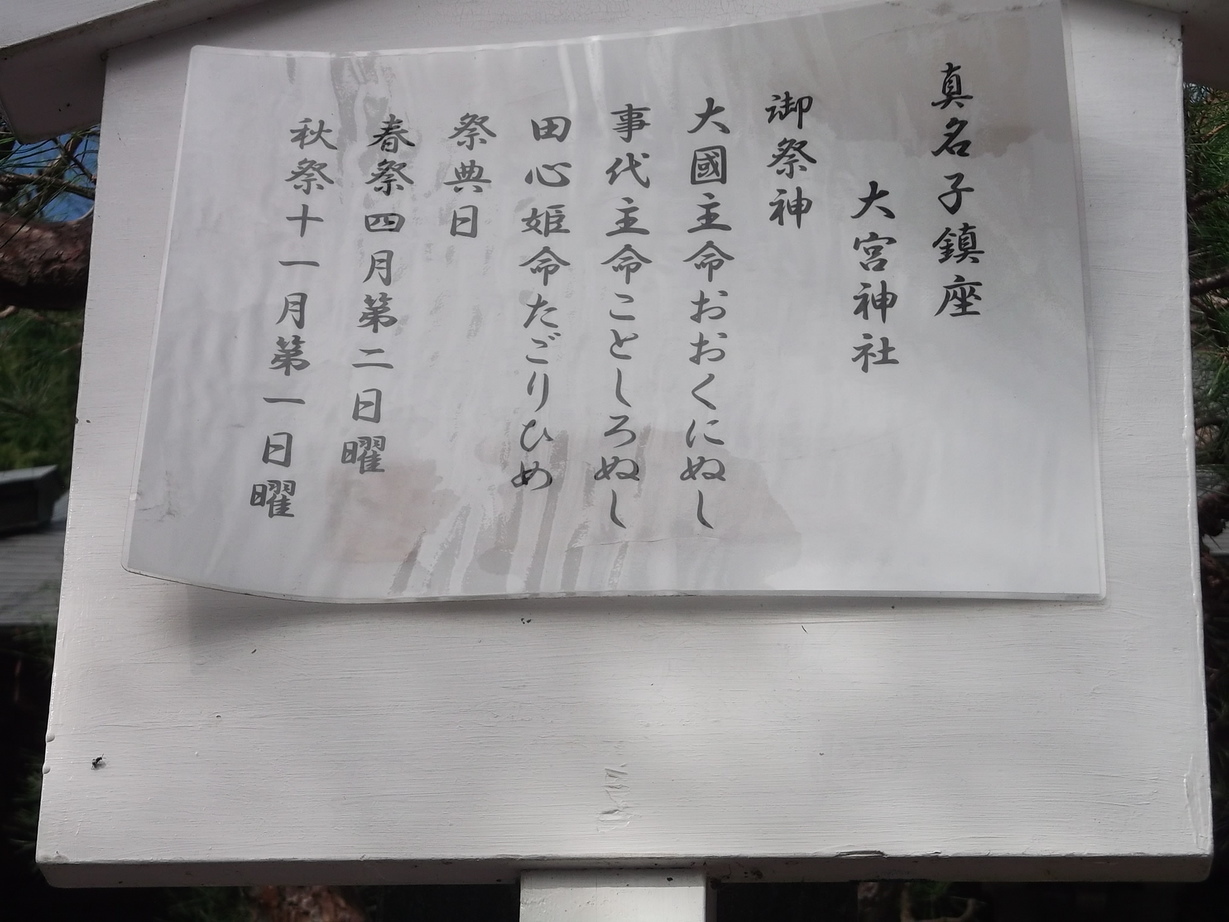 真名子鎮座
大宮神社
御祭神
大國主命おおくにぬし
事代主命ことしろぬし
田心姫命たごりひめ
祭典日
春祭四月第二日曜
秋祭十一月第一日曜